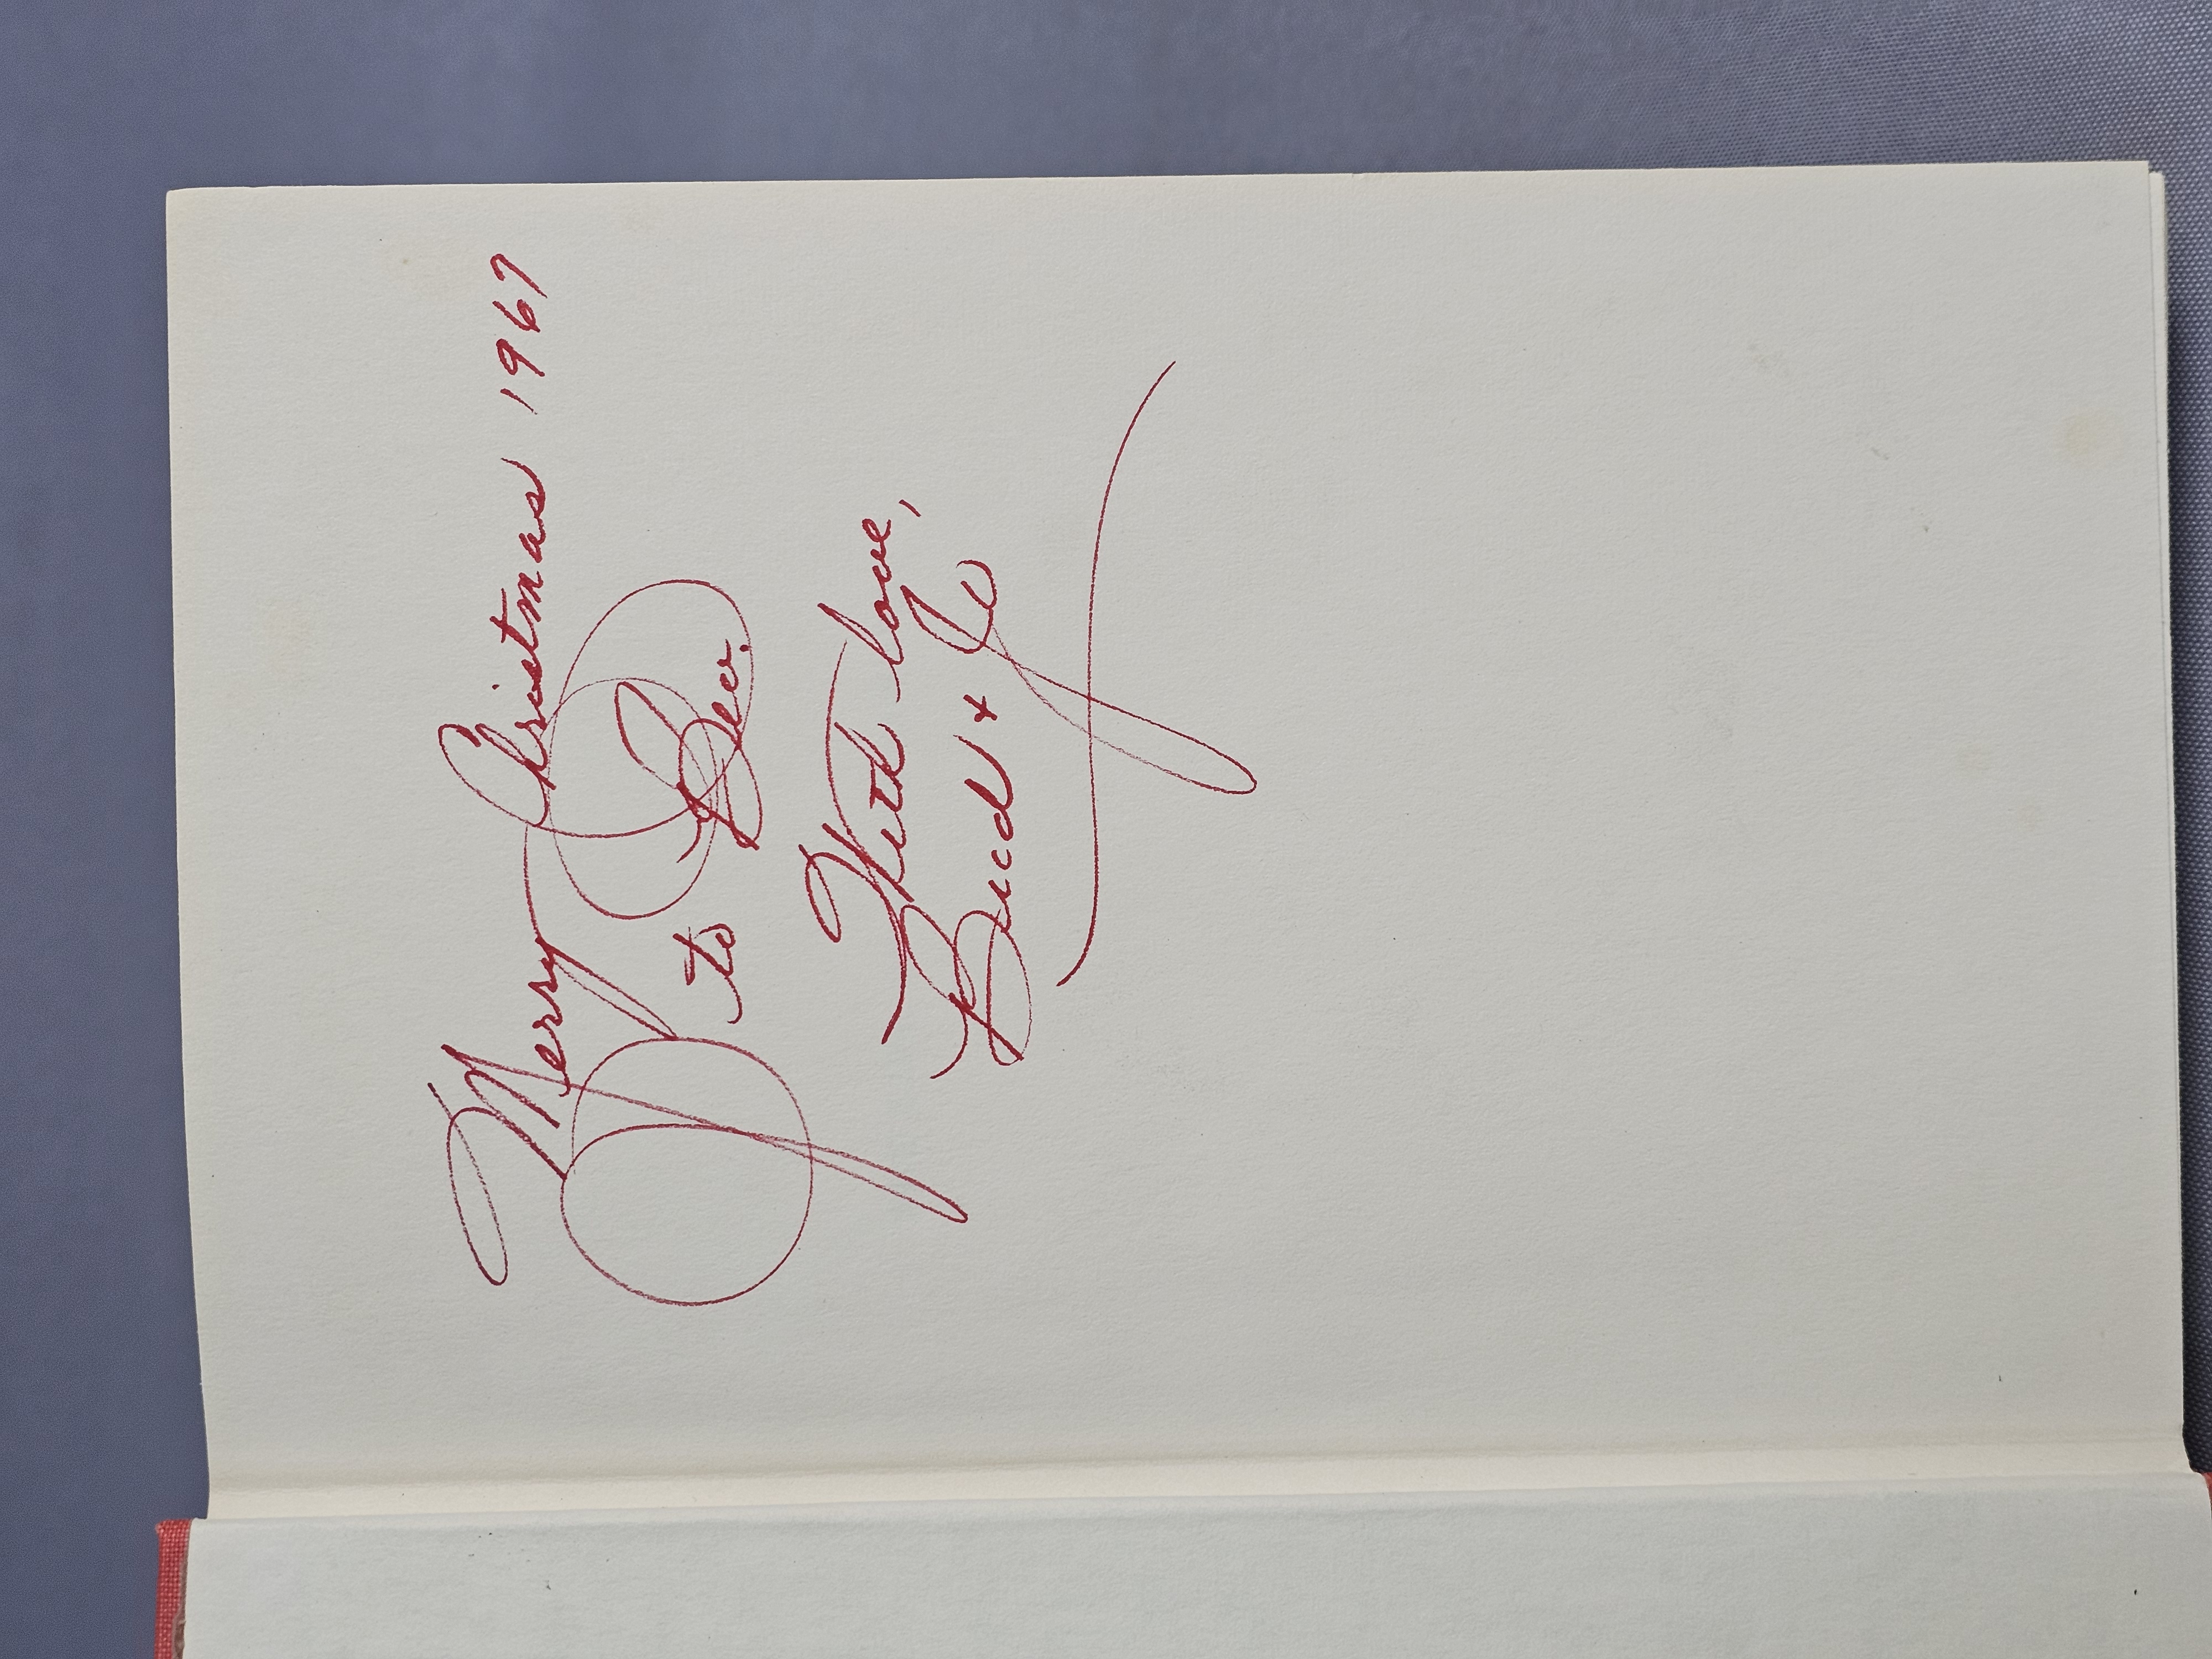 Merry Christmas 1967
to Bev.
With love,
Bud + Jo